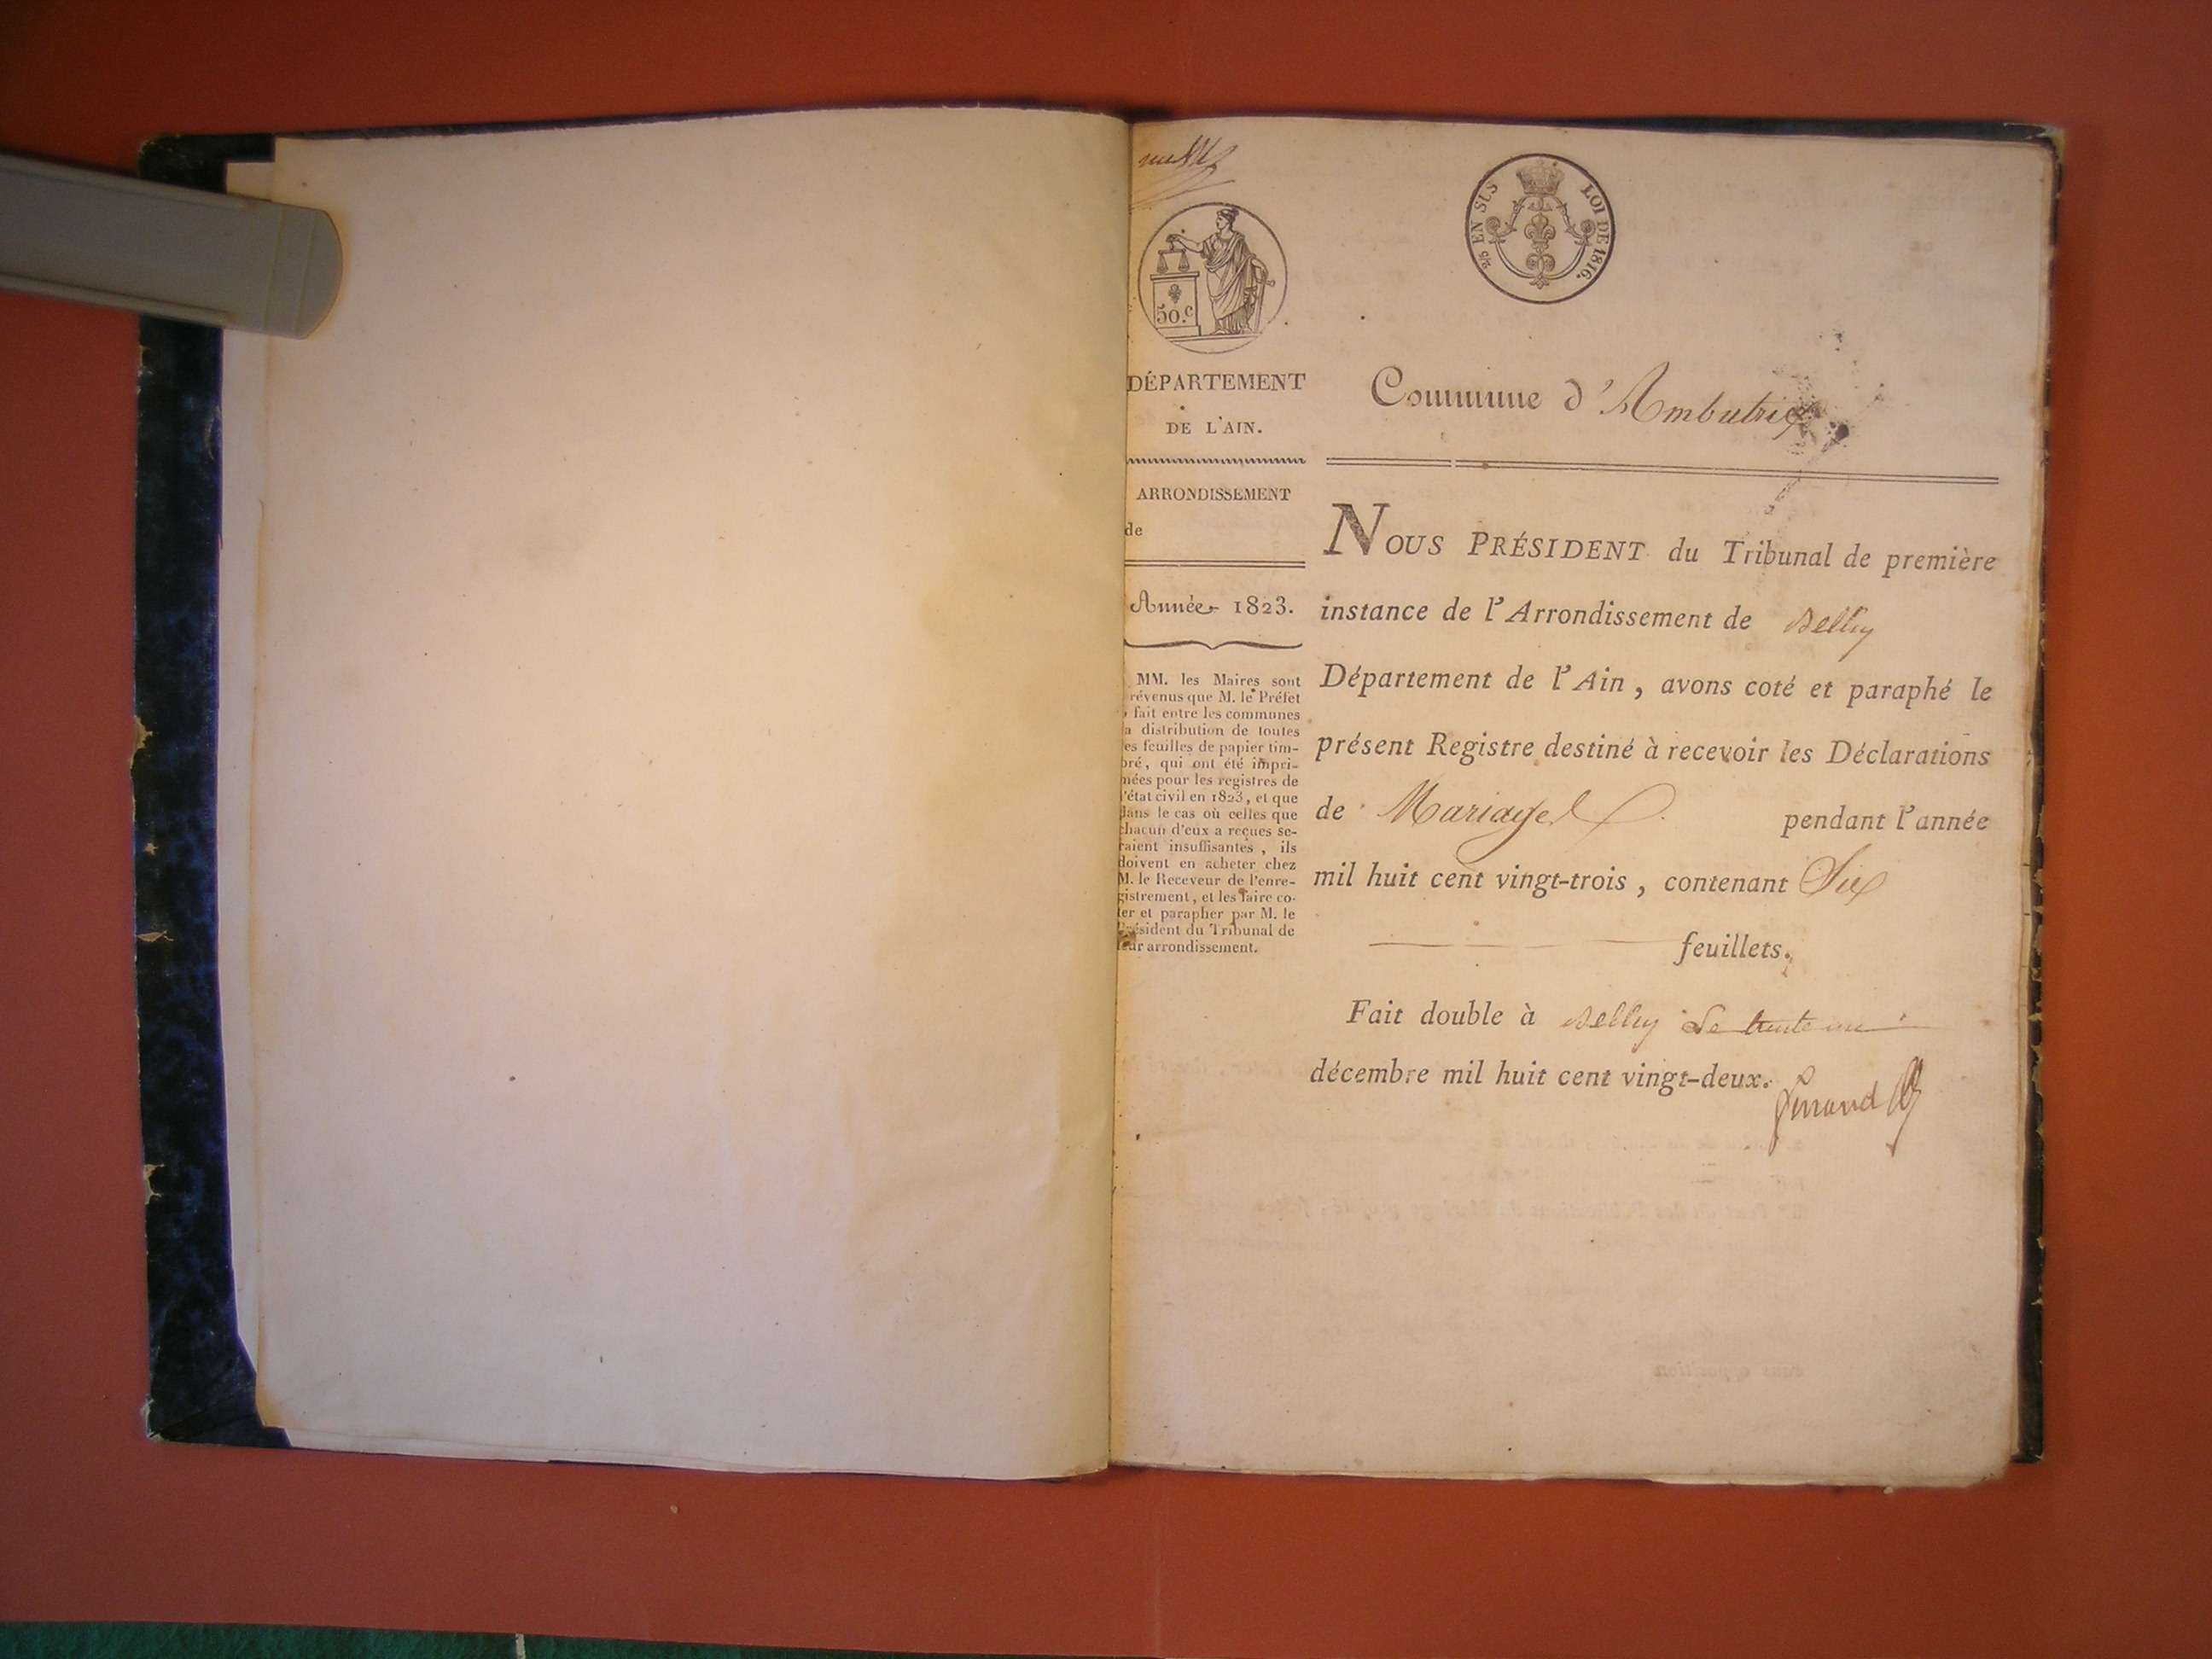 50.c
2/5 EN SUS LOI DE 1816.
DÉPARTEMENT
DE L'AIN.
ARRONDISSEMENT
de
Année 1823.
MM. les Maires sont
révenus que M. le Préfet
fait entre les communes
a distribution de toutes
es feuilles de papier tim-
bré, qui ont été impri-
mées pour les registres de
l'état civil en 1823, et que
dans le cas où celles que
chacun d'eux a reçues se-
raient insuffisantes, ils
doivent en acheter chez
M. le Receveur de l'enre-
gistrement, et les faire co-
ter et parapher par M. le
Président du Tribunal de
leur arrondissement.
Commune d'Ambutrix
NOUS PRÉSIDENT du Tribunal de première
instance de l'Arrondissement de Belley
Département de l'Ain, avons coté et paraphé le
présent Registre destiné à recevoir les Déclarations
de Mariages pendant l'année
mil huit cent vingt-trois, contenant Six
feuillets.
Fait double à Belley le trente un
décembre mil huit cent vingt-deux.